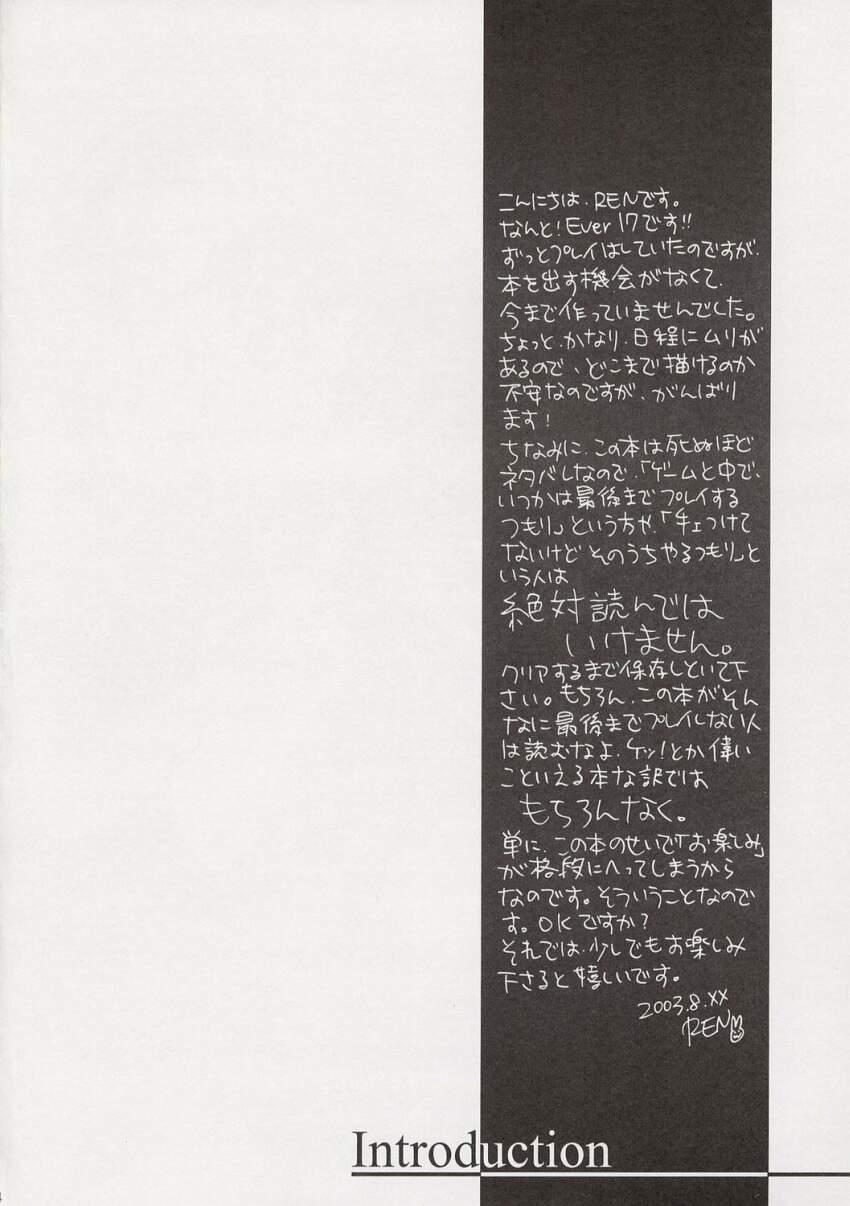 こんにちは、RENです。
なんと!Ever17です!!
ずっとプレイはしていたのですが、
本を出す機会がなくて、
今まで作っていませんでした。
ちょっと、かなり、日程にムリが
あるので、どこまで描けるのか
不安なのですが、がんばり
ます!
ちなみに、この本は死ぬほど
ネタバレなので、「ゲームと中で、
いつかは最後までプレイする
つもり」という方や、「手ェつけて
ないけど そのうちやるつもり」と
いう人は
絶対読んでは
いけません。
クリアするまで保存しといて下
さい。もちろん、この本がそん
なに最後までプレイしない人
は読むなよ、ケッ!とか偉い
こといえる本な訳では
もちろんなく。
単に、この本のせいで「お楽しみ」
が格段にへってしまうから
なのです。そういうことなので
す。OKですか?
それでは、少しでもお楽しみ
下さると嬉しいです。
2003.8.XX
REN
Introduction